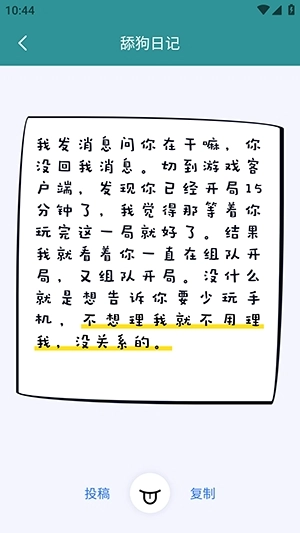 10:44
舔狗日记
我发消息问你在干嘛，你
没回我消息。切到游戏客
户端，发现你已经开局15
分钟了，我觉得那等着你
玩完这一局就好了。结果
我就看着你一直在组队开
局，又组队开局。没什么
就是想告诉你要少玩手
机，不想理我就不用理
我，没关系的。
投稿
复制